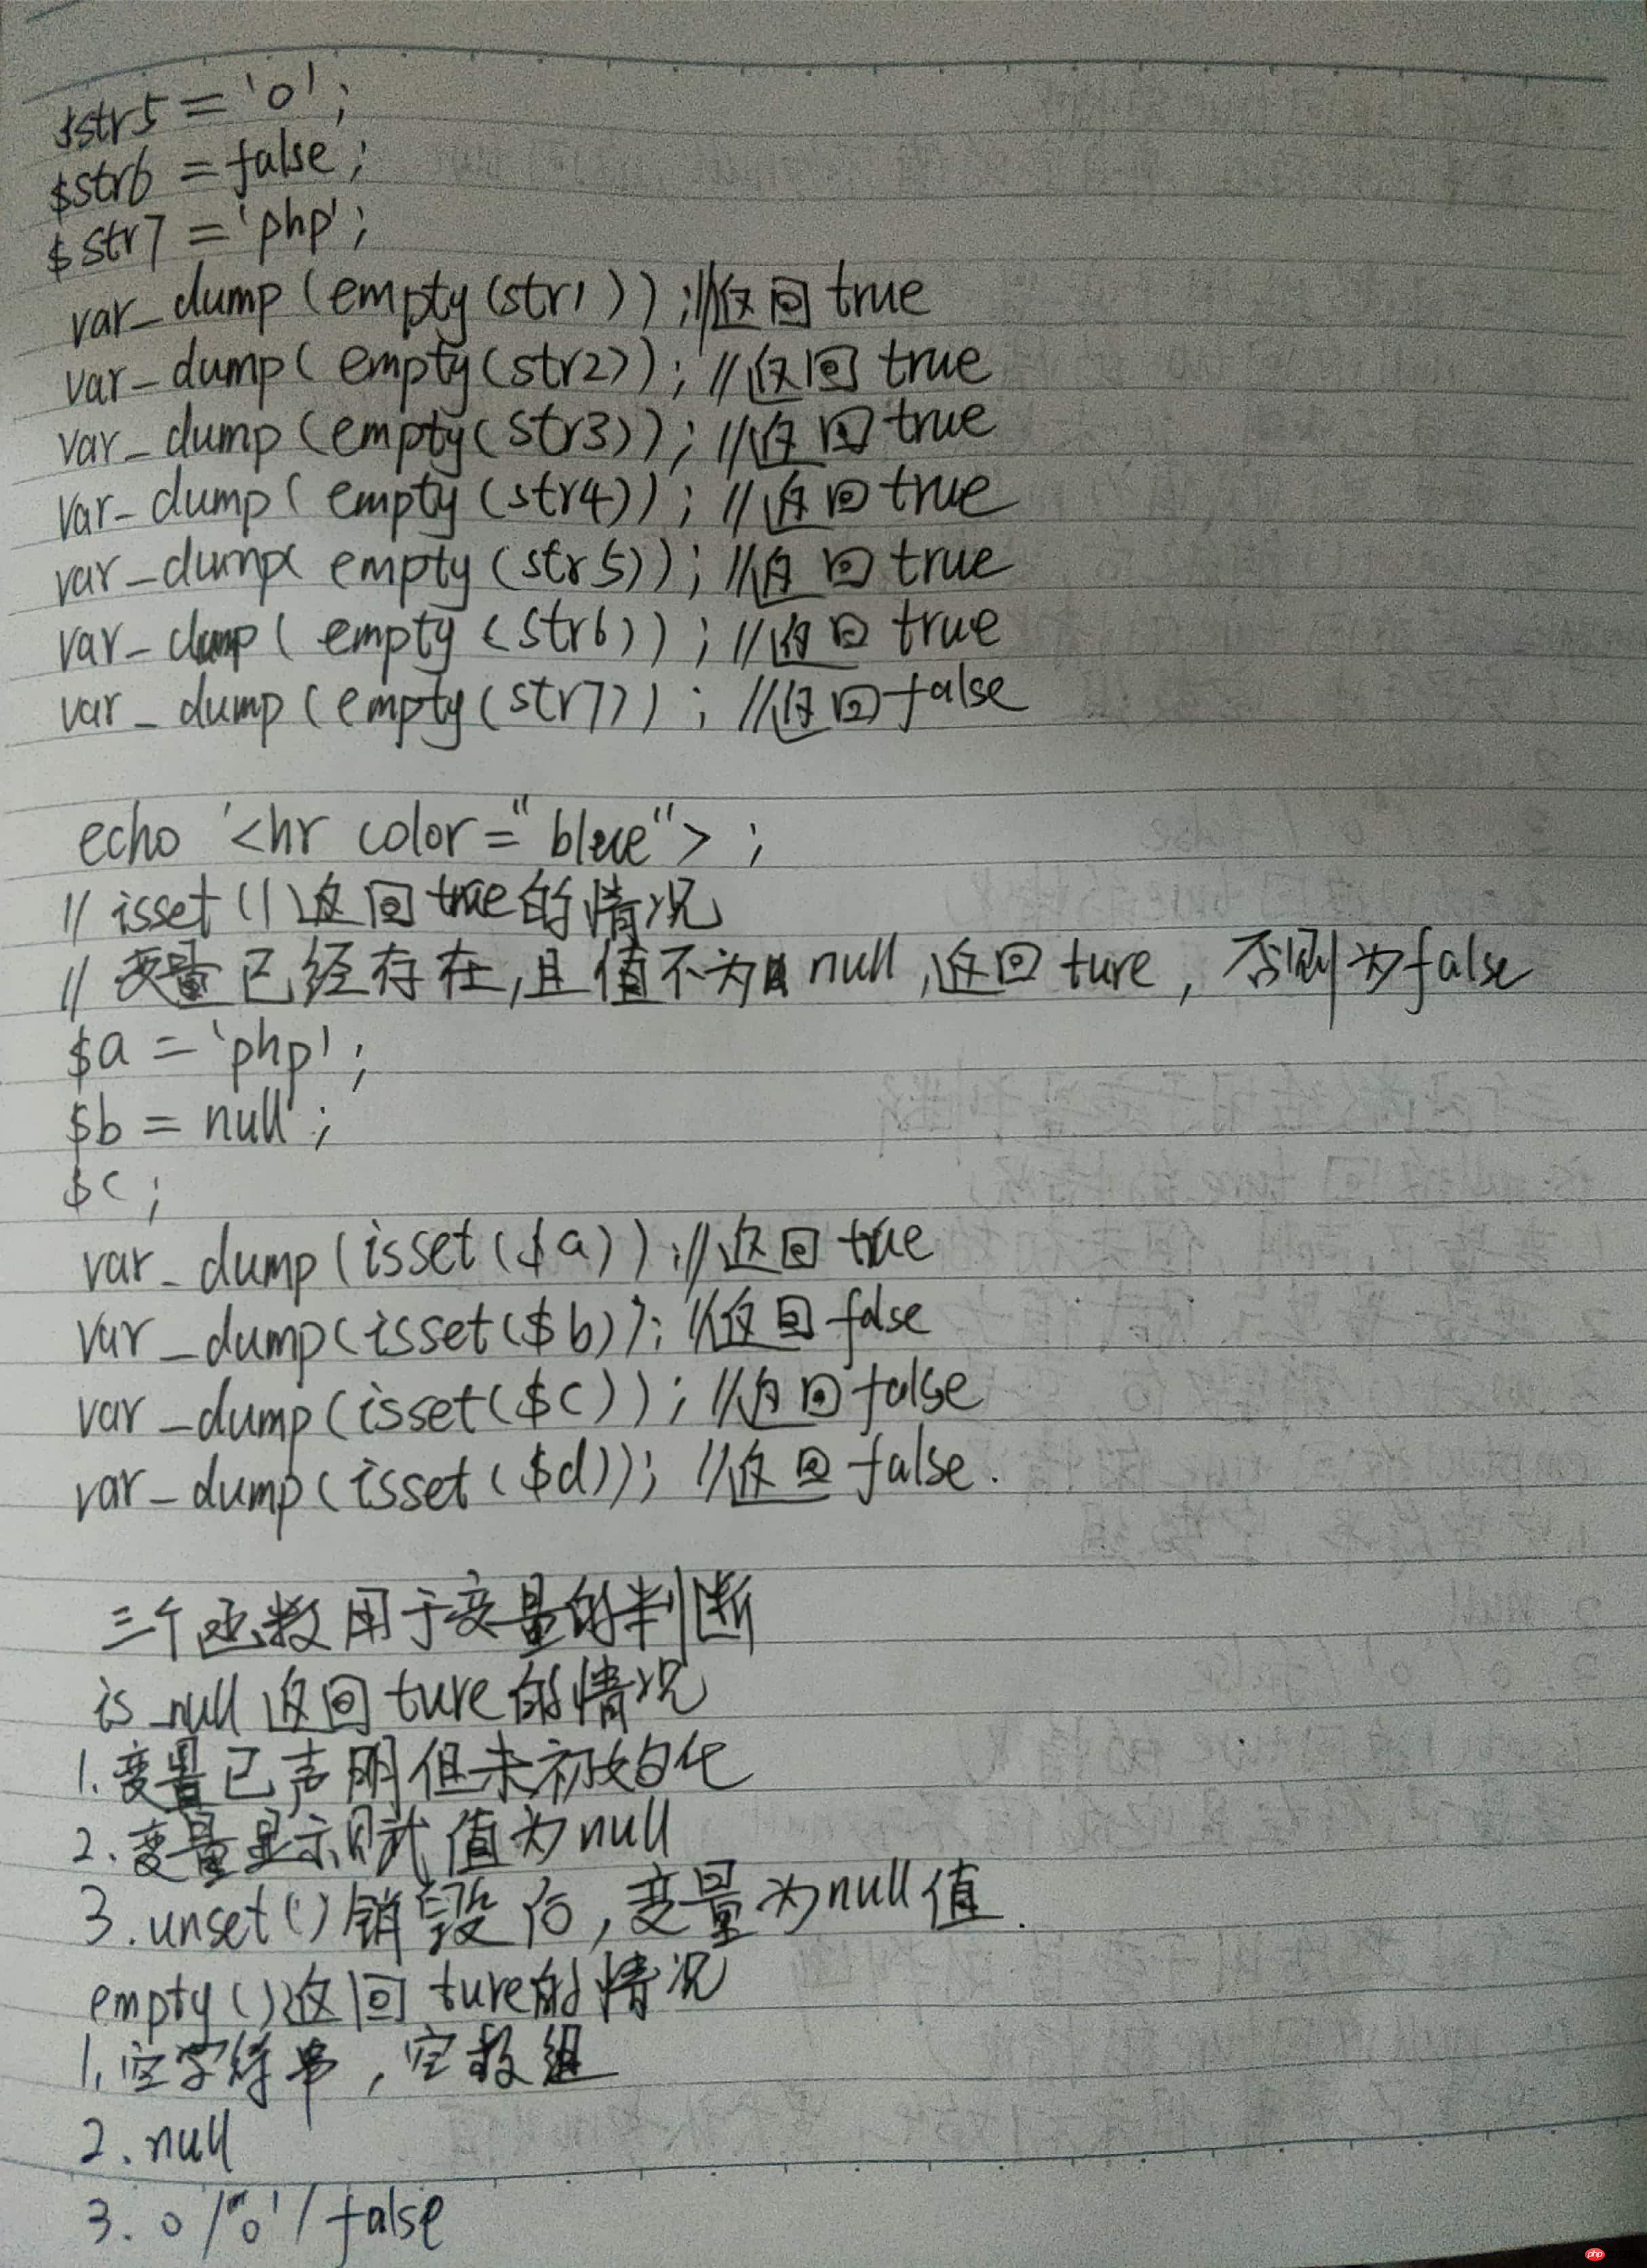 $str5 = '0';
$str6 = false;
$str7 = 'php';
var_dump(empty(str1));//返回true
var_dump(empty(str2));//返回true
var_dump(empty(str3));//返回true
var_dump(empty(str4));//返回true
var_dump(empty(str5));//返回true
var_dump(empty(str6));//返回true
var_dump(empty(str7));//返回false
echo '<hr color="blue">;
// isset()返回true的情况
// 变量已经存在,且值不为null,返回ture,否则为false
$a = 'php';
$b = null;
$c;
var_dump(isset($a));//返回true
var_dump(isset($b));//返回false
var_dump(isset($c));//返回false
var_dump(isset($d));//返回false.
三个函数用于变量的判断
is_null返回ture的情况
1.变量已声明但未初始化
2.变量显示赋值为null
3.unset()销毁后,变量为null值.
empty()返回ture的情况
1.空字符串,空数组
2.null
3.0/'0'/false
php